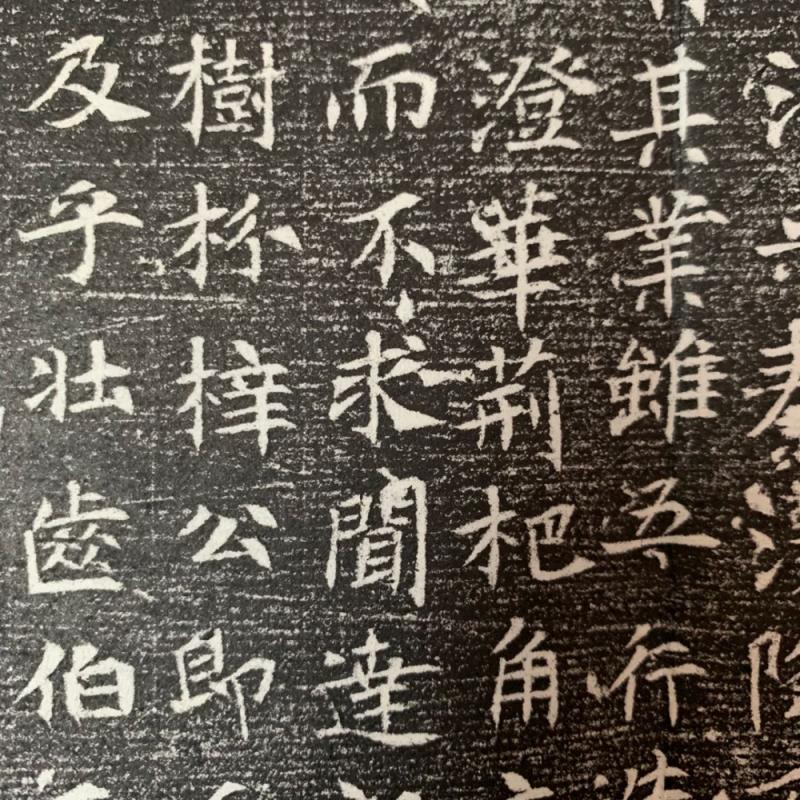 其業雖五行
澄華荆杞角
而不求聞達
樹枌梓公即
及乎壯齒伯